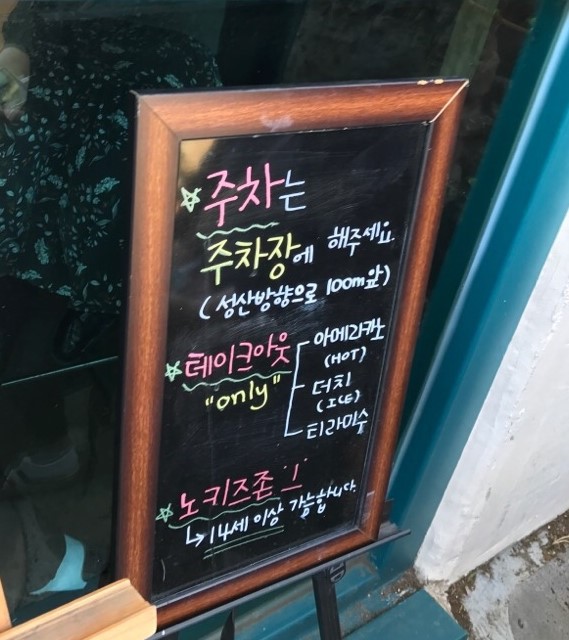 ☆ 주차는
주차장에 해주세요
(성산방향으로 100m앞)
☆ 테이크아웃
"only"
아메리카노
(HOT)
더치
(ICE)
티라미수
☆ 노키즈존!
↳ 14세 이상 가능합니다.